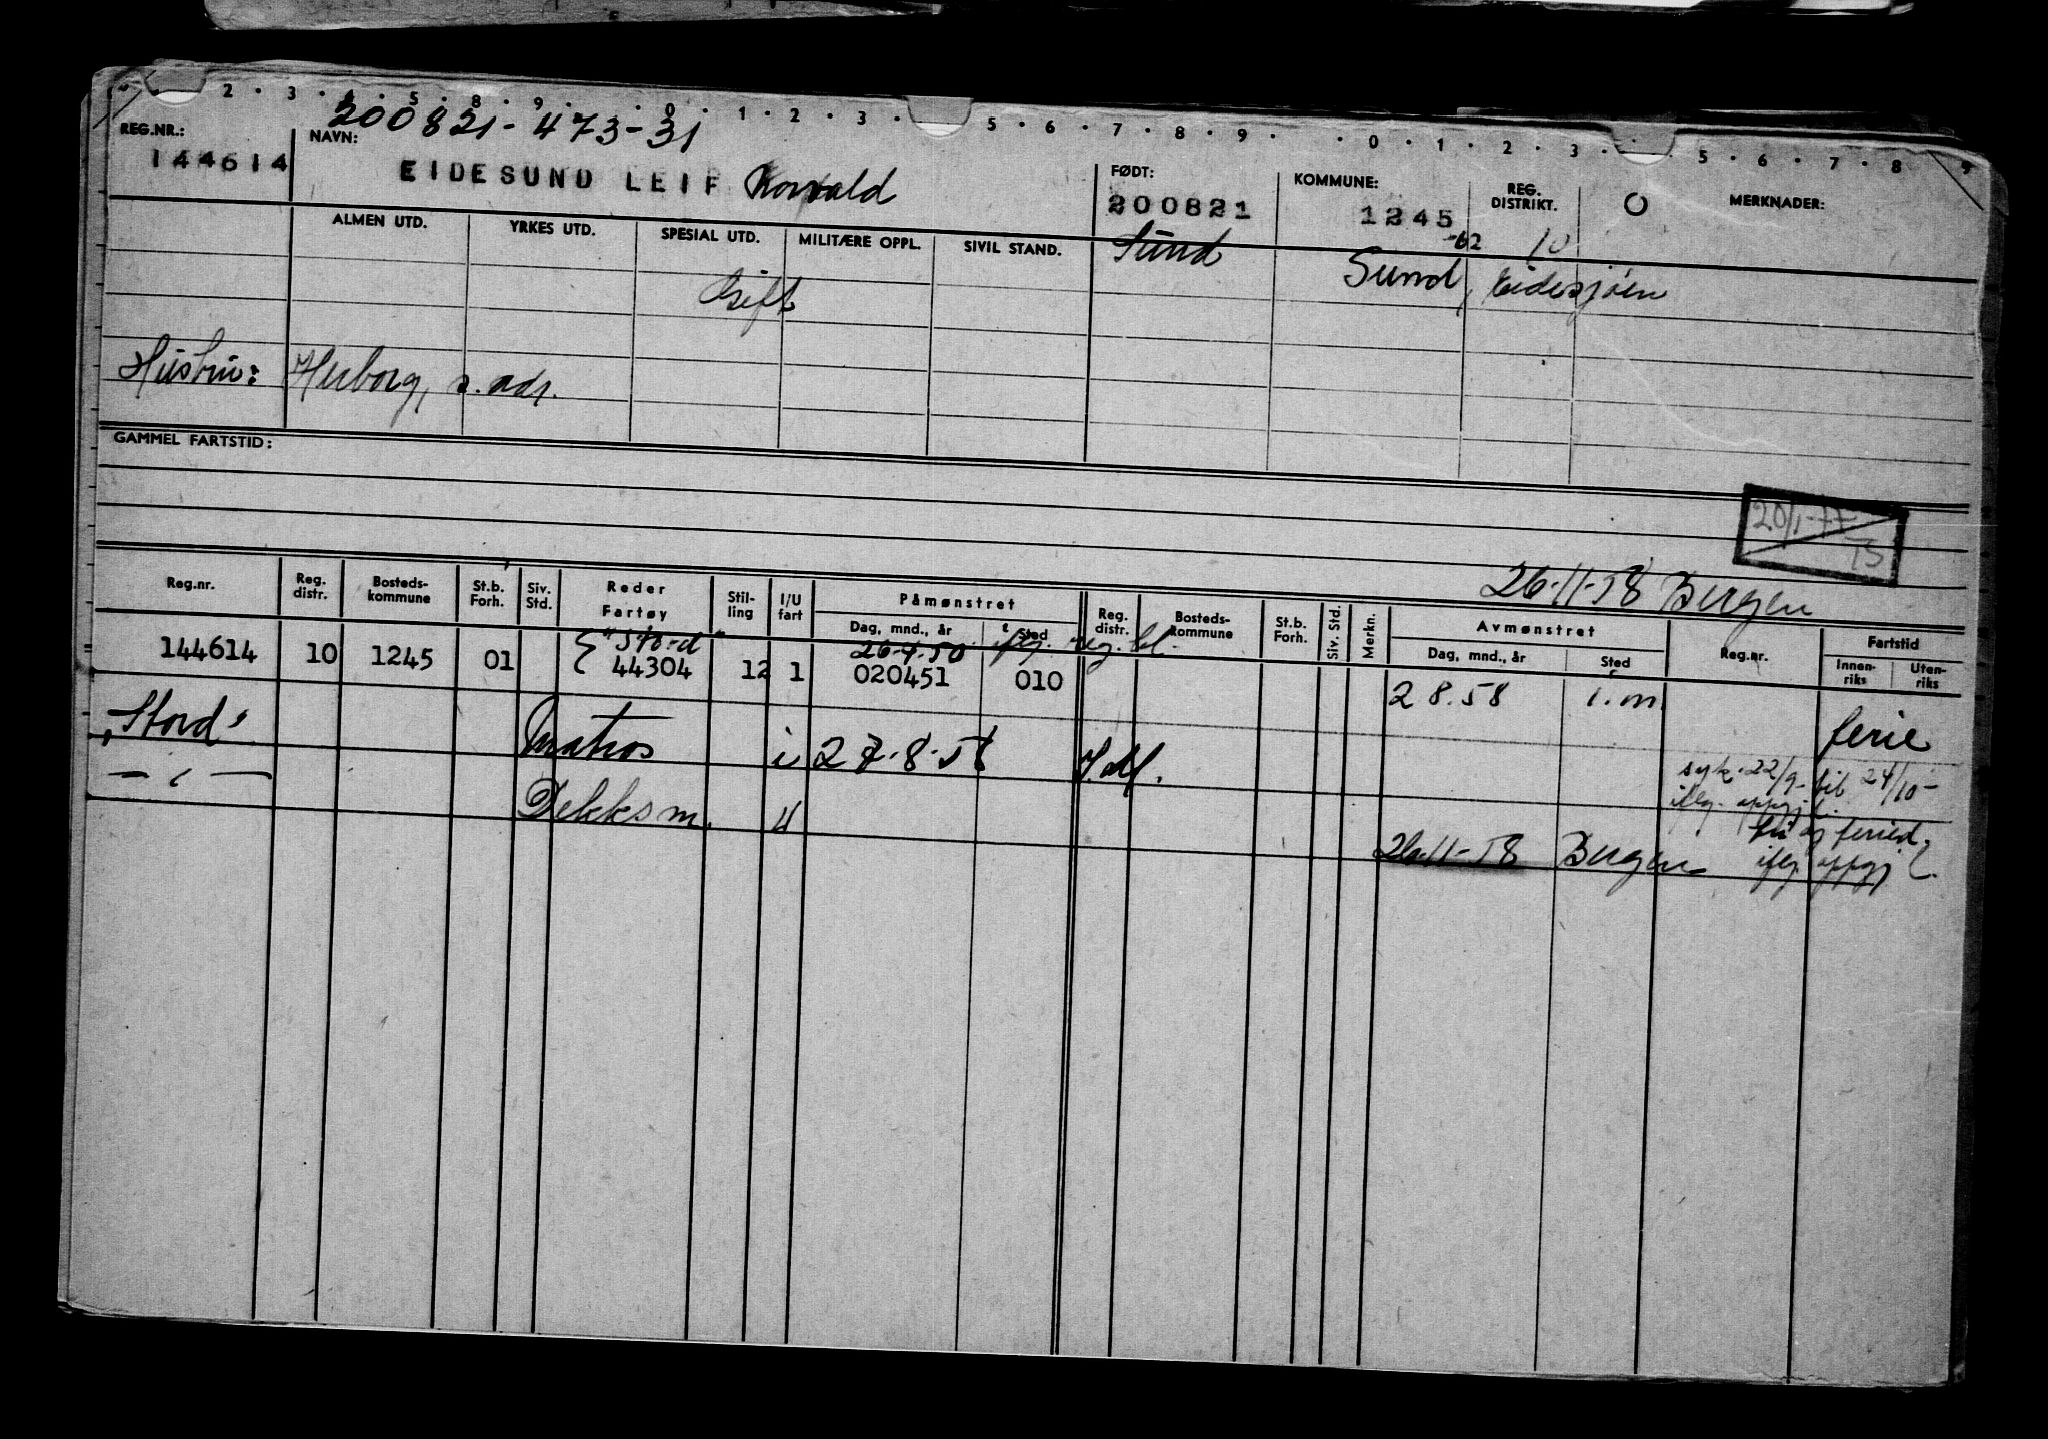 2 · 3 · 4 · 5 · 8 · 9 · 0 · 1 · 2 · 3 · 5 · 6 · 7 · 8 · 9 · 0 · 1 · 2 · 3 · 5 · 6 · 7 · 8 · 9
200821-473-31
REG.NR.: NAVN: FØDT: KOMMUNE: REG. DISTRIKT. MERKNADER:
144614 EIDESUND LEIF 200821 1245 10
-62
ALMEN UTD. YRKES UTD. SPESIAL UTD. MILITÆRE OPPL. SIVIL STAND. Sund
Gift Sund, Eidesjøen
Hustru: Herborg, s. adr.
GAMMEL FARTSTID:
20/1-77
TS
26-11-58 Bergen
Reg.nr. Reg. distr. Bosteds-kommune St.b. Forh. Siv. Std. Reder Fartøy Stil-ling I/U fart Påmønstret Dag, mnd., år Sted Reg. distr. Bosteds-kommune St.b. Forh. Siv. Std. Merkn. Avmønstret Dag, mnd., år Sted Reg.nr. Fartstid Innen-riks Uten-riks
"Stord" 26-9-50 iflg. reg. bl.
144614 10 1245 01 44304 12 1 020451 010 2 8.58 i.m.
"Stord" Matros i 27-8-58 ferie
syk. 22/9- til 24/10-
iflg. oppgj.
— " — Dekksm. " fri og feried.
26-11-58 Bergen iflg. oppgj.